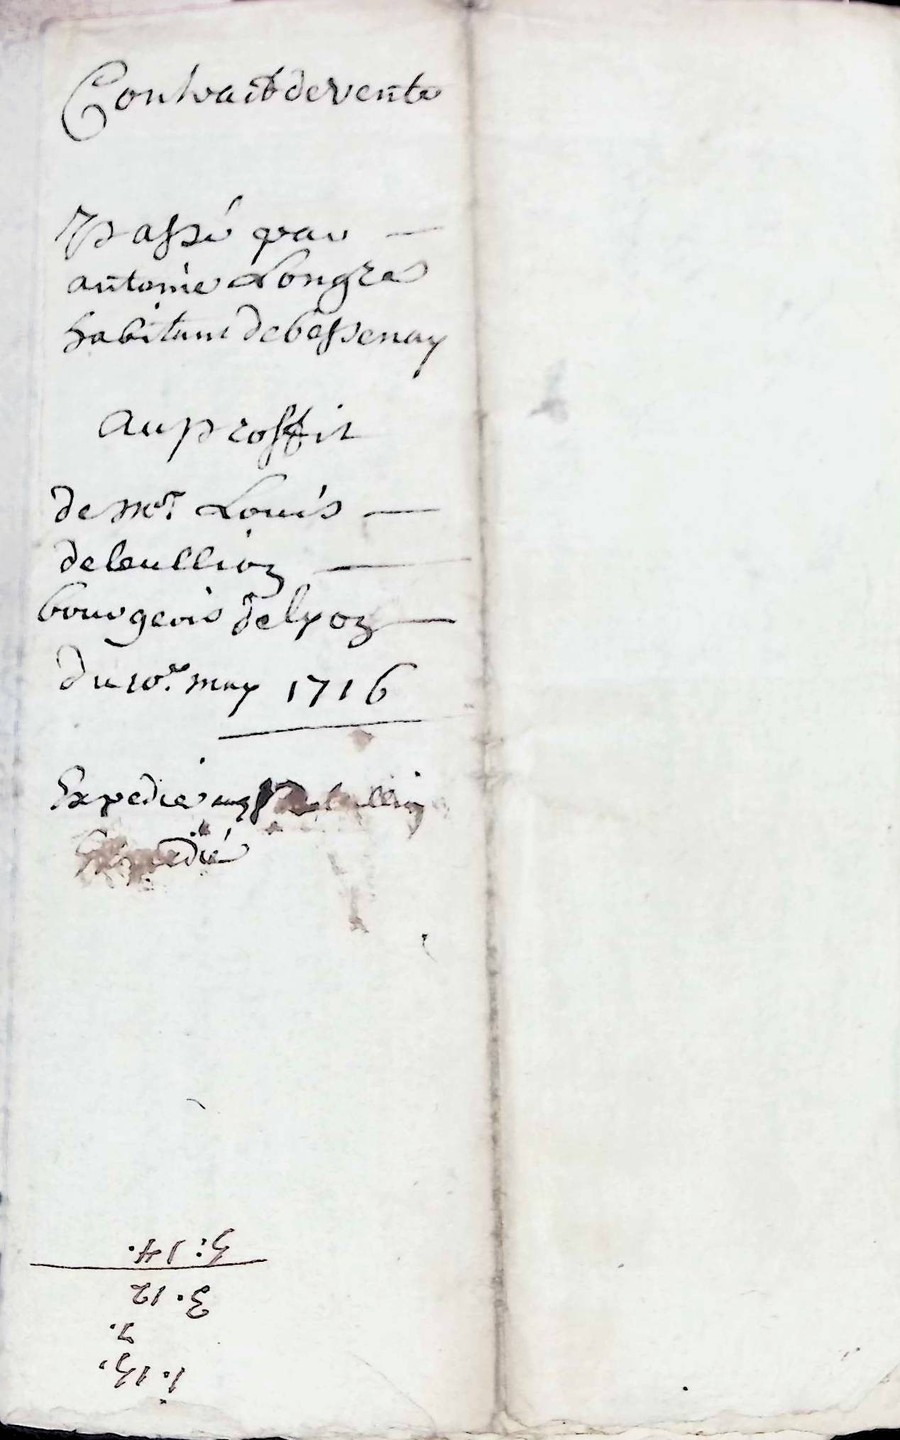 Contract de vente
Passé par —
antoine Longre
habitant de bessenay
au proffit
de mor. Louis —
deleullion —
bourgeois de lyon —
du 10e. may 1716
Expedié
Expedié
1. 15.
2.
3. 12
5: 14.